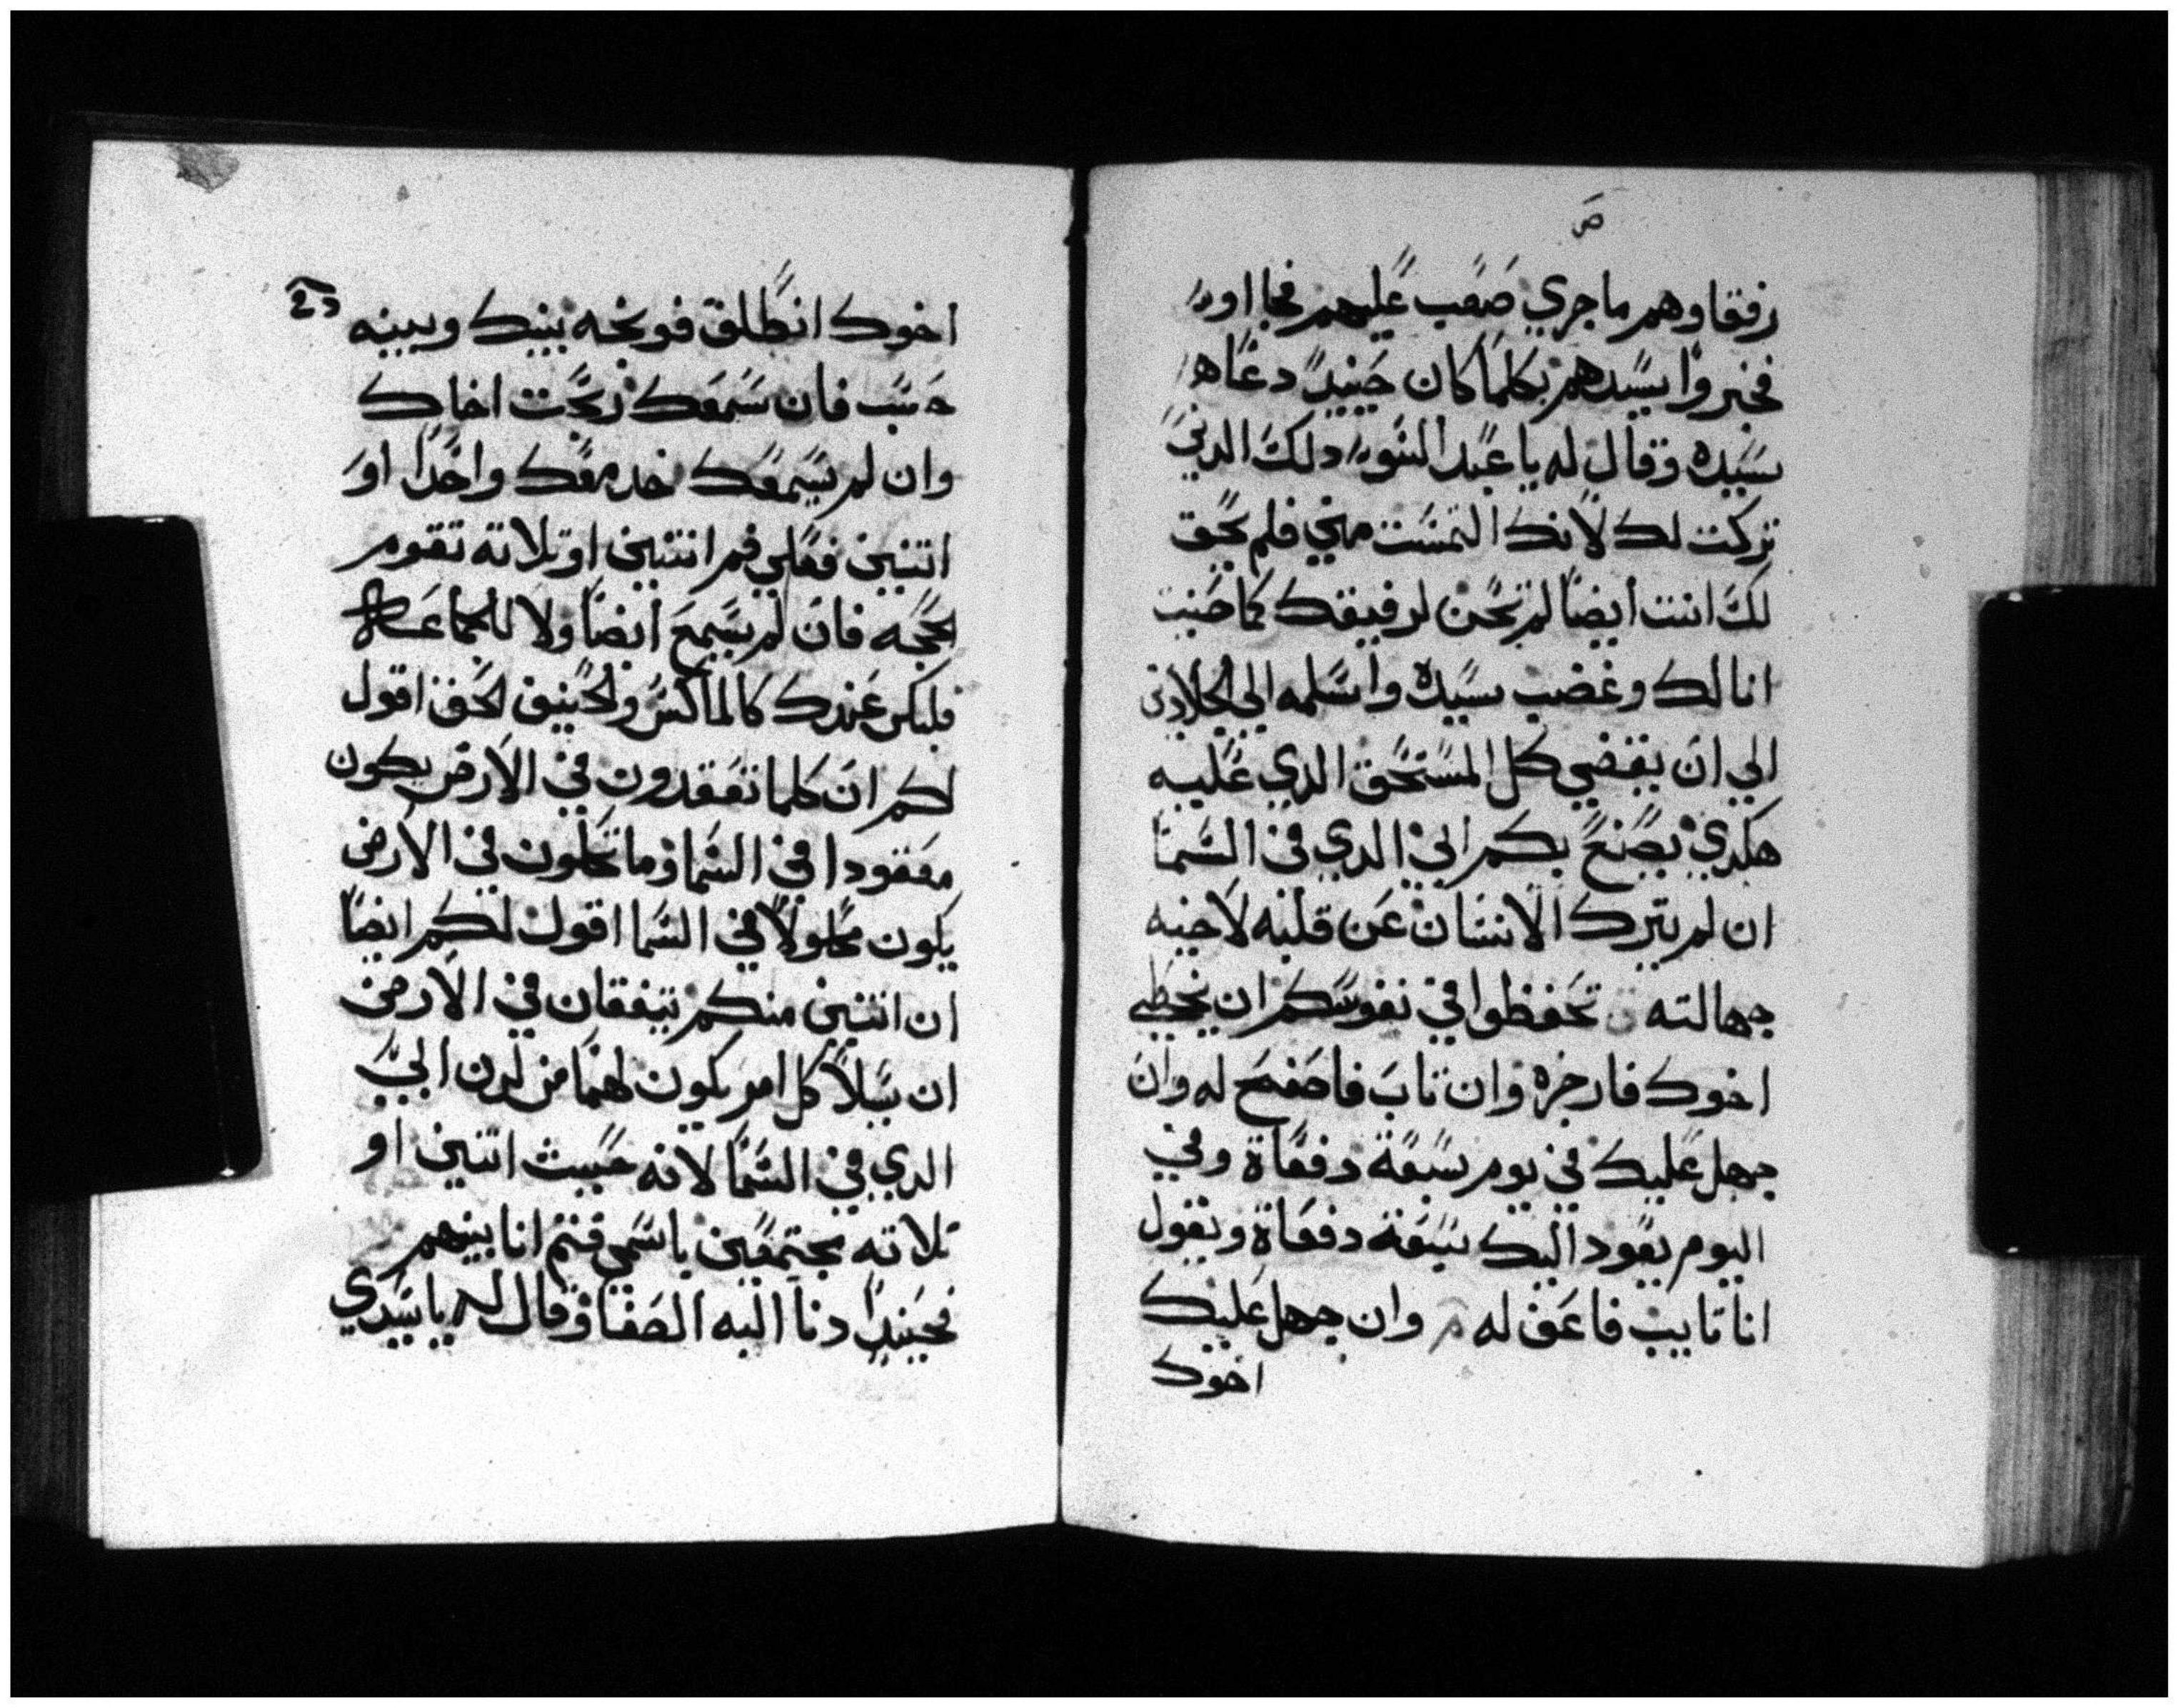 ص
رفقاوهم ماجري صَعب عَليهم فجا اور
فخبروا سيدهم بكلما كان حينيد دعاه
سيده وقال له يا عبد السو دلك الدين
تركت لك لانك التمست مني فلم يحق
لك انت ايضا لم تحن لرفيقك كما حنيت
انا لك وغضب سيده واسلمه الي الجلادين
الي ان يقضي كل المستحق الدي عليه
هكدي يصنع بكم ابي الدي في السما
ان لم يترك الانسان عن قلبه لاخيه
جهالته تحفظوا في نفوسكم ان يخطي
اخوك فازجره وان تاب فاصفح له وان
جهل عليك في يوم سبعة دفعاة وفي
اليوم يعود اليك سبعة دفعاة ويقول
انا تايب فاعف له وان جهل عليك
اخوك
اخوك انطلق فوبخه بينك وبينه
حسب فان سمعك ربحت اخاك
وان لم يسمعك خد معك واحدا او
اتنين فعلي فم اتنين او تلاته تقوم
الحجه فان لم يسمع ايضا ولا للجماعه
فليكن عندك كالماكس والحنيف الحق اقول
لكم ان كلما تعقدون في الارض يكون
معقودا في السما وما تحلون في الارض
يكون محلولا في السما اقول لكم ايضا
ان اتنين منكم يتفقان في الارض
ان يسلا كل امر يكون لهما من لدن ابي
الدي في السما لانه حيث اتنين او
تلاته مجتمعين باسمي فتم انا بينهم
فحينيدا دنا اليه الصفا وقال له يا سيدي